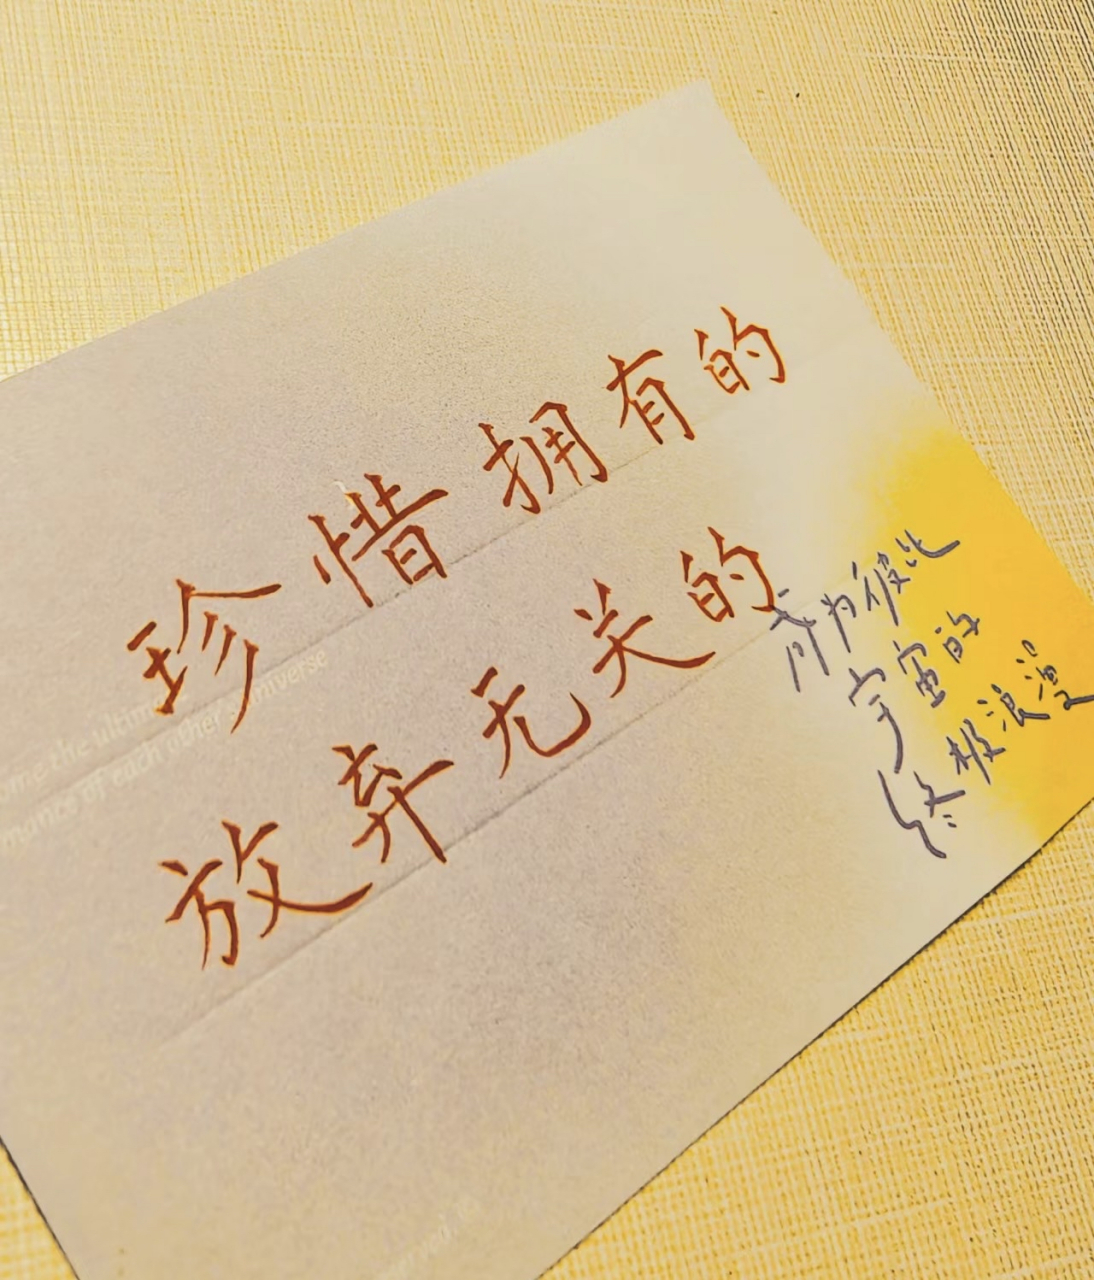 珍惜拥有的
放弃无关的
成为彼此
宇宙的
终极浪漫
the ultim
mance of each other universe